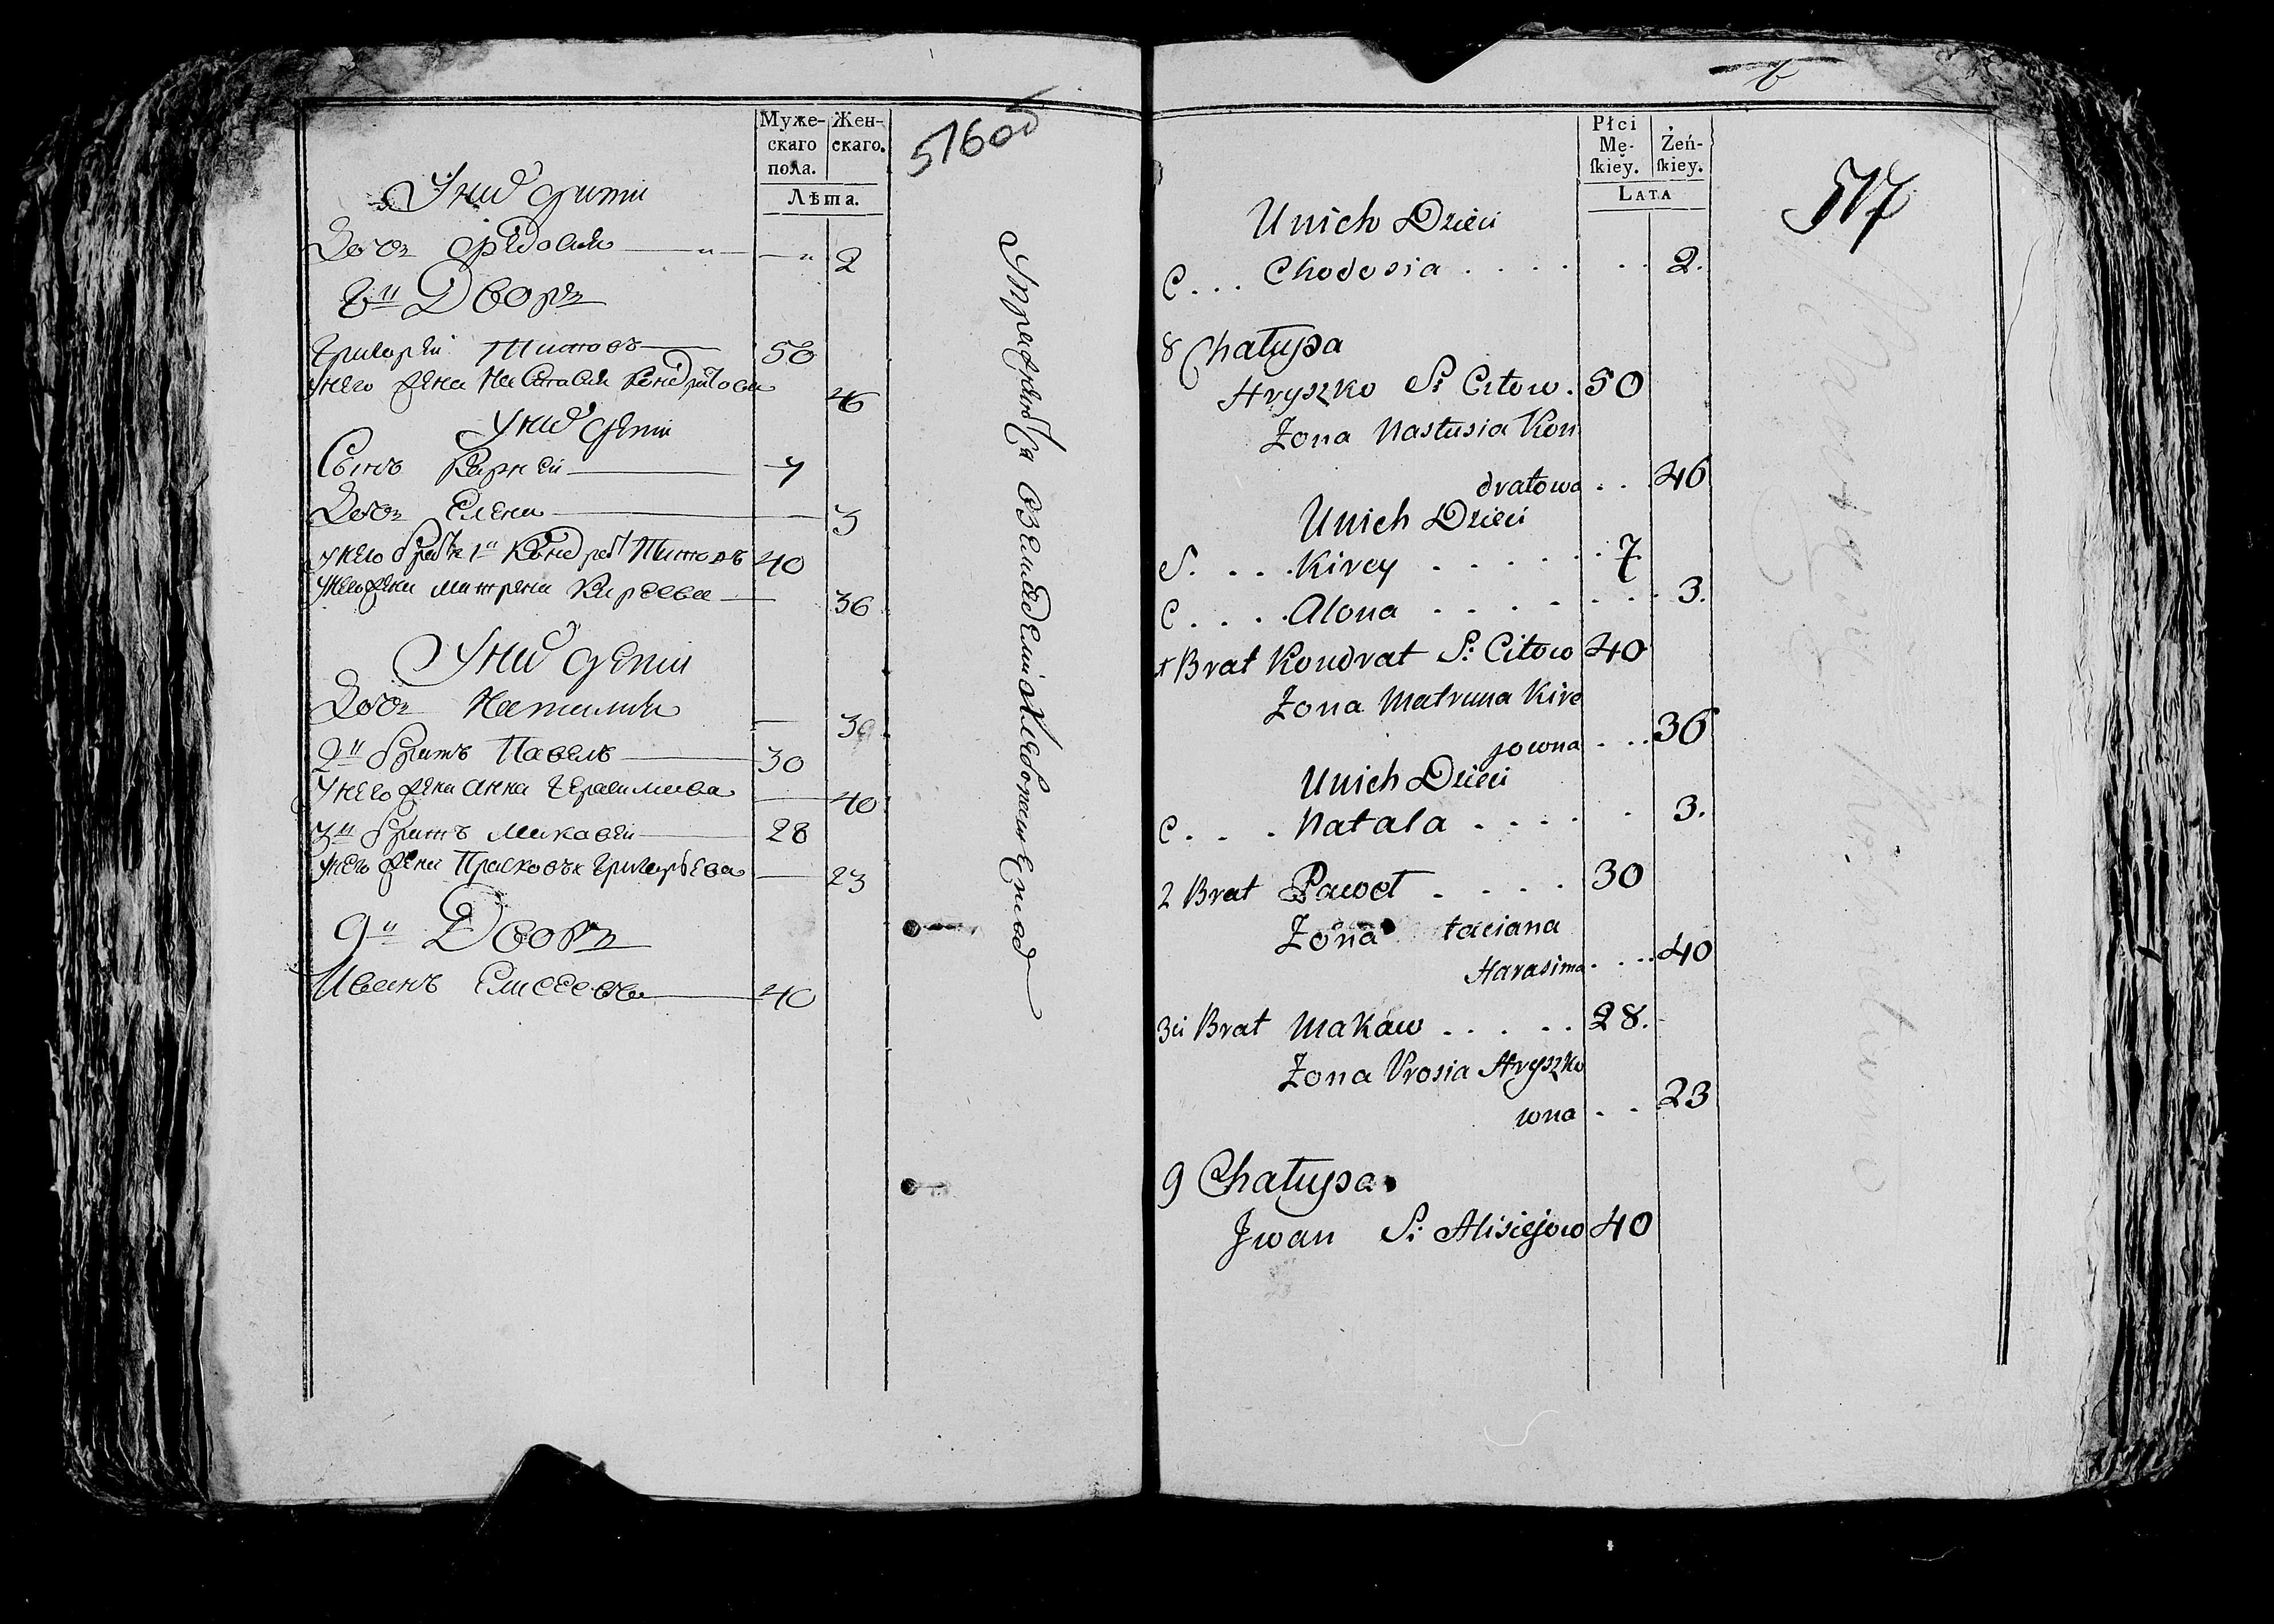 Муже-
скаго
пола.
Жен-
скаго.
Лѣта.
516 об
У них дети
Дочь Федосия 2
8й Дворъ
Григорей Титовъ 50
У него жена Настасия Кондратова 46
У них дети
Сынъ Кирей 7
Дочь Елена 3
У него братъ 1й Кондрат Титовъ 40
У него жена Матрена Киреева 36
У них дети
Дочь Наталия 3
2й братъ Павелъ 30
У него жена Анна Герасимова 40
3й братъ Макавей 28
У него жена Прасковья Григорьева 23
9й Дворъ
Иванъ Елисеевъ 40
Płci
Mę-
ſkiey.
Żeń-
ſkiey.
LATA
517
Unich Dzieci
C... Chodosia 2.
8 Chałupa
Hryszko S: Citow. 50
Żona Nastusia Kon
dratowa 46
Unich Dzieci
S. Kirey 7
C. Alona 3.
1 Brat Kondrat S: Citow 40
Żona Matruna Kire
jowna 36
Unich Dzieci
C. Natala 3.
2 Brat Paweł 30
Żona taciana
Harasima 40
3ci Brat Makaw 28.
Żona Prosia Hryszko
wna 23
9 Chałupa
Jwan S: Alisiejow 40